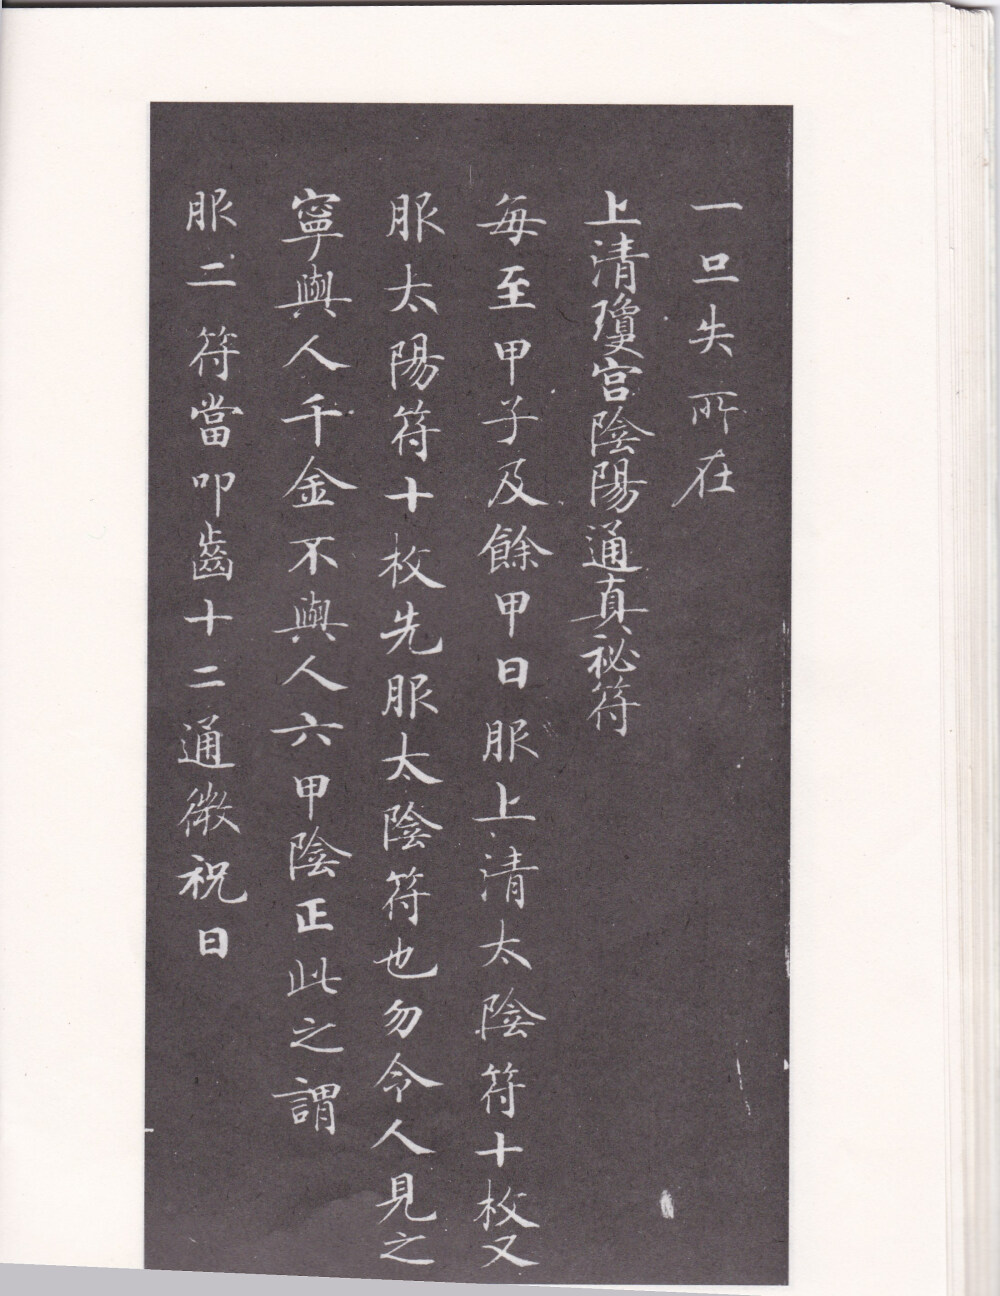 一旦失所在
上清瓊宮陰陽通真祕符
每至甲子及餘甲日服上清太陰符十枚又
服太陽符十枚先服太陰符也勿令人見之
寧與人千金不與人六甲陰正此之謂
服二符當叩齒十二通微祝曰